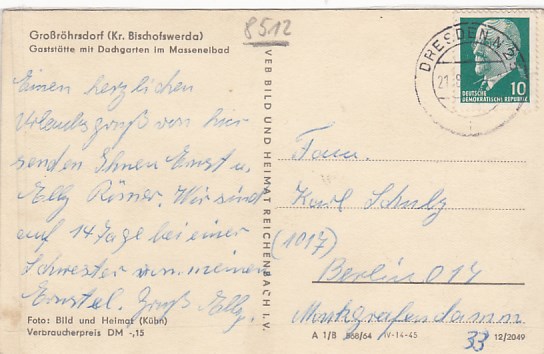 Großröhrsdorf (Kr. Bischofswerda)
Gaststätte mit Dachgarten im Masseneibad
8512
Einen herzlichen
Urlaubsgruß von hier
senden Ihnen Ernst u.
Elly Römer. Wir sind
auf 14 Tage bei einer
Schwester von meinen
Ernstel. Gruß Elly.
Foto: Bild und Heimat (Kühn)
Verbraucherpreis DM -,15
VEB BILD UND HEIMAT REICHENBACH I. V.
DRESDEN N 23
21.8
10
DEUTSCHE
DEMOKRATISCHE REPUBLIK
Fam.
Karl Schulz
(1017)
Berlin 017
Markgrafendamm
33
A 1/B 868/64 IV-14-45 12/2049